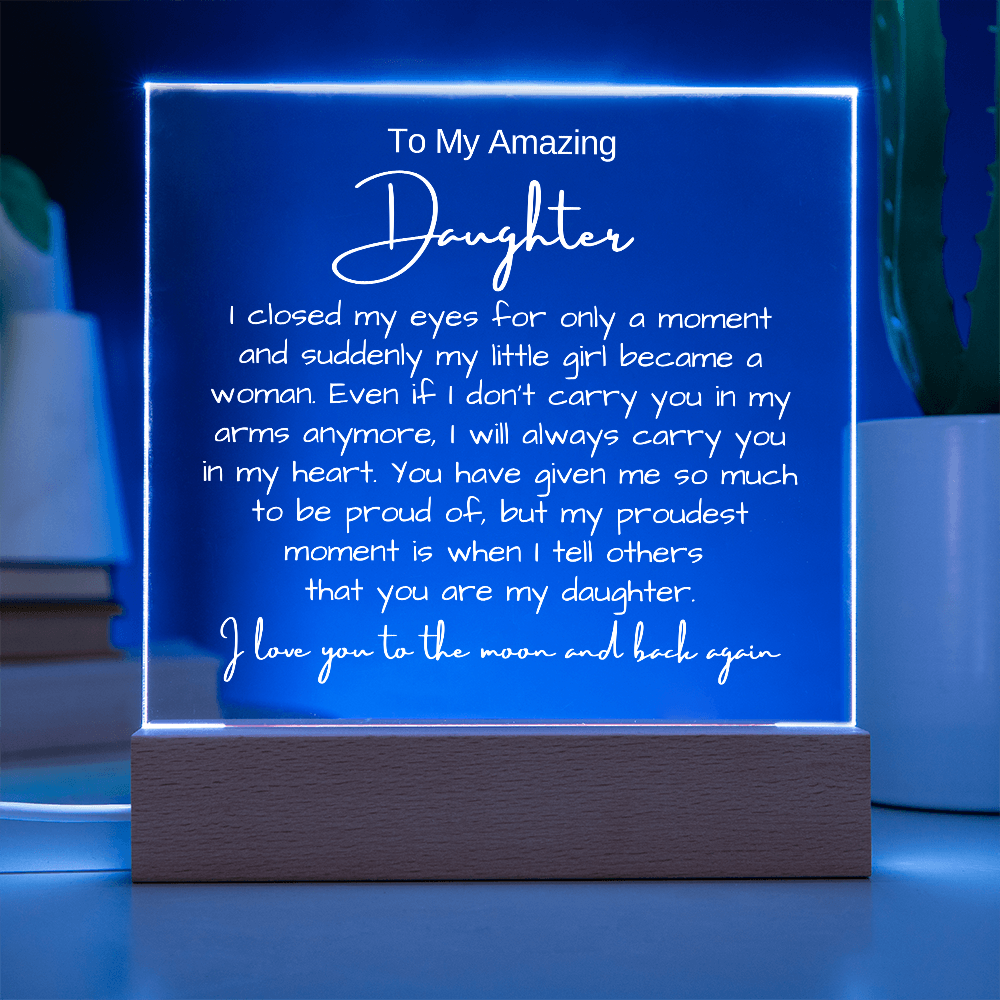 To My Amazing
Daughter
I closed my eyes for only a moment
and suddenly my little girl became a
woman. Even if I don't carry you in my
arms anymore, I will always carry you
in my heart. You have given me so much
to be proud of, but my proudest
moment is when I tell others
that you are my daughter.
I love you to the moon and back again